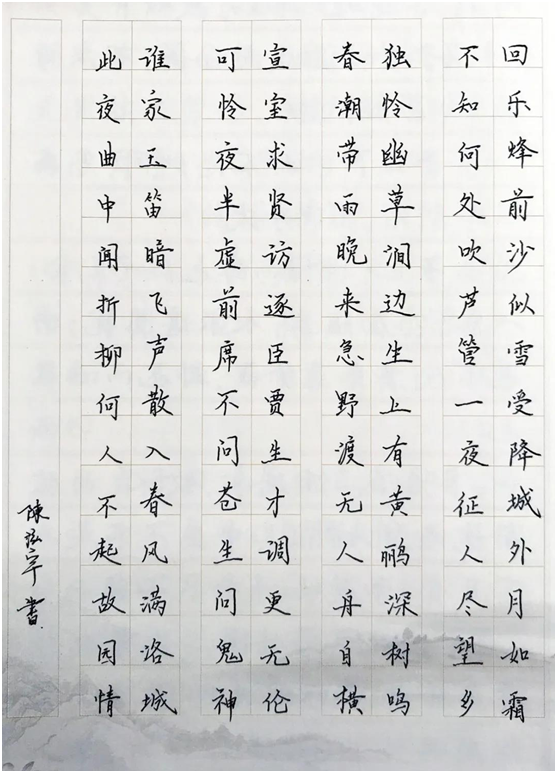 回乐蜂前沙似雪受降城外月如霜
不知何处吹芦管一夜征人尽望乡
独怜幽草涧边生上有黄鹂深树鸣
春潮带雨晚来急野渡无人舟自横
宣室求贤访逐臣贾生才调更无伦
可怜夜半虚前席不问苍生问鬼神
谁家玉笛暗飞声散入春风满洛城
此夜曲中闻折柳何人不起故园情
陳 書